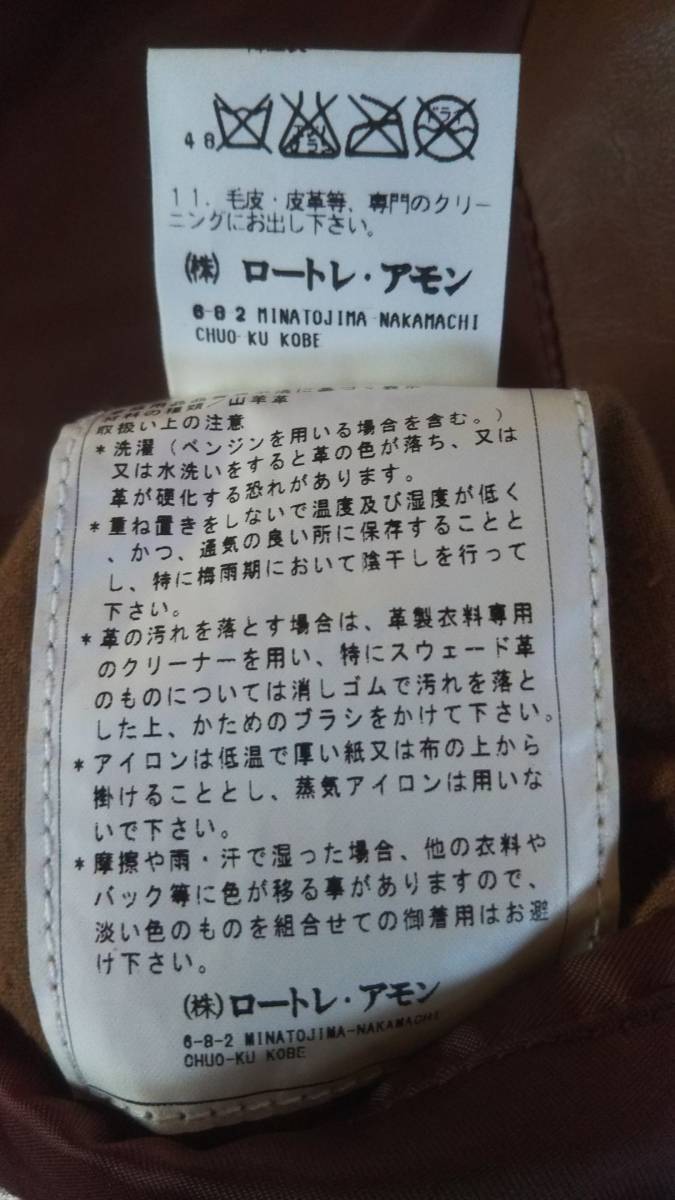 48
エンソ
サラシ
ドライ
11. 毛皮・皮革等、専門のクリー
ニングにお出し下さい。
(株) ロートレ・アモン
6-8-2 MINATOJIMA-NAKAMACHI
CHUO-KU KOBE
材料の種類/山羊革
取扱い上の注意
*洗濯(ベンジンを用いる場合を含む。)
又は水洗いをすると革の色が落ち、又は
革が硬化する恐れがあります。
*重ね置きをしないで温度及び湿度が低く
、かつ、通気の良い所に保存することと
し、特に梅雨期において陰干しを行って
下さい。
*革の汚れを落とす場合は、革製衣料専用
のクリーナーを用い、特にスウェード革
のものについては消しゴムで汚れを落と
した上、かためのブラシをかけて下さい。
*アイロンは低温で厚い紙又は布の上から
掛けることとし、蒸気アイロンは用いな
いで下さい。
*摩擦や雨・汗で湿った場合、他の衣料や
バック等に色が移る事がありますので、
淡い色のものを組合せての御着用はお避
け下さい。
(株)ロートレ・アモン
6-8-2 MINATOJIMA-NAKAMACHI
CHUO-KU KOBE